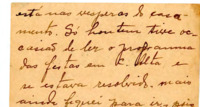 esta nas vesperas do casa-
mento. Só hontem tive oc-
casião de ler o programma
das festas em C. Alta e
se estava resolvido, mais
ainda fiquei para ir